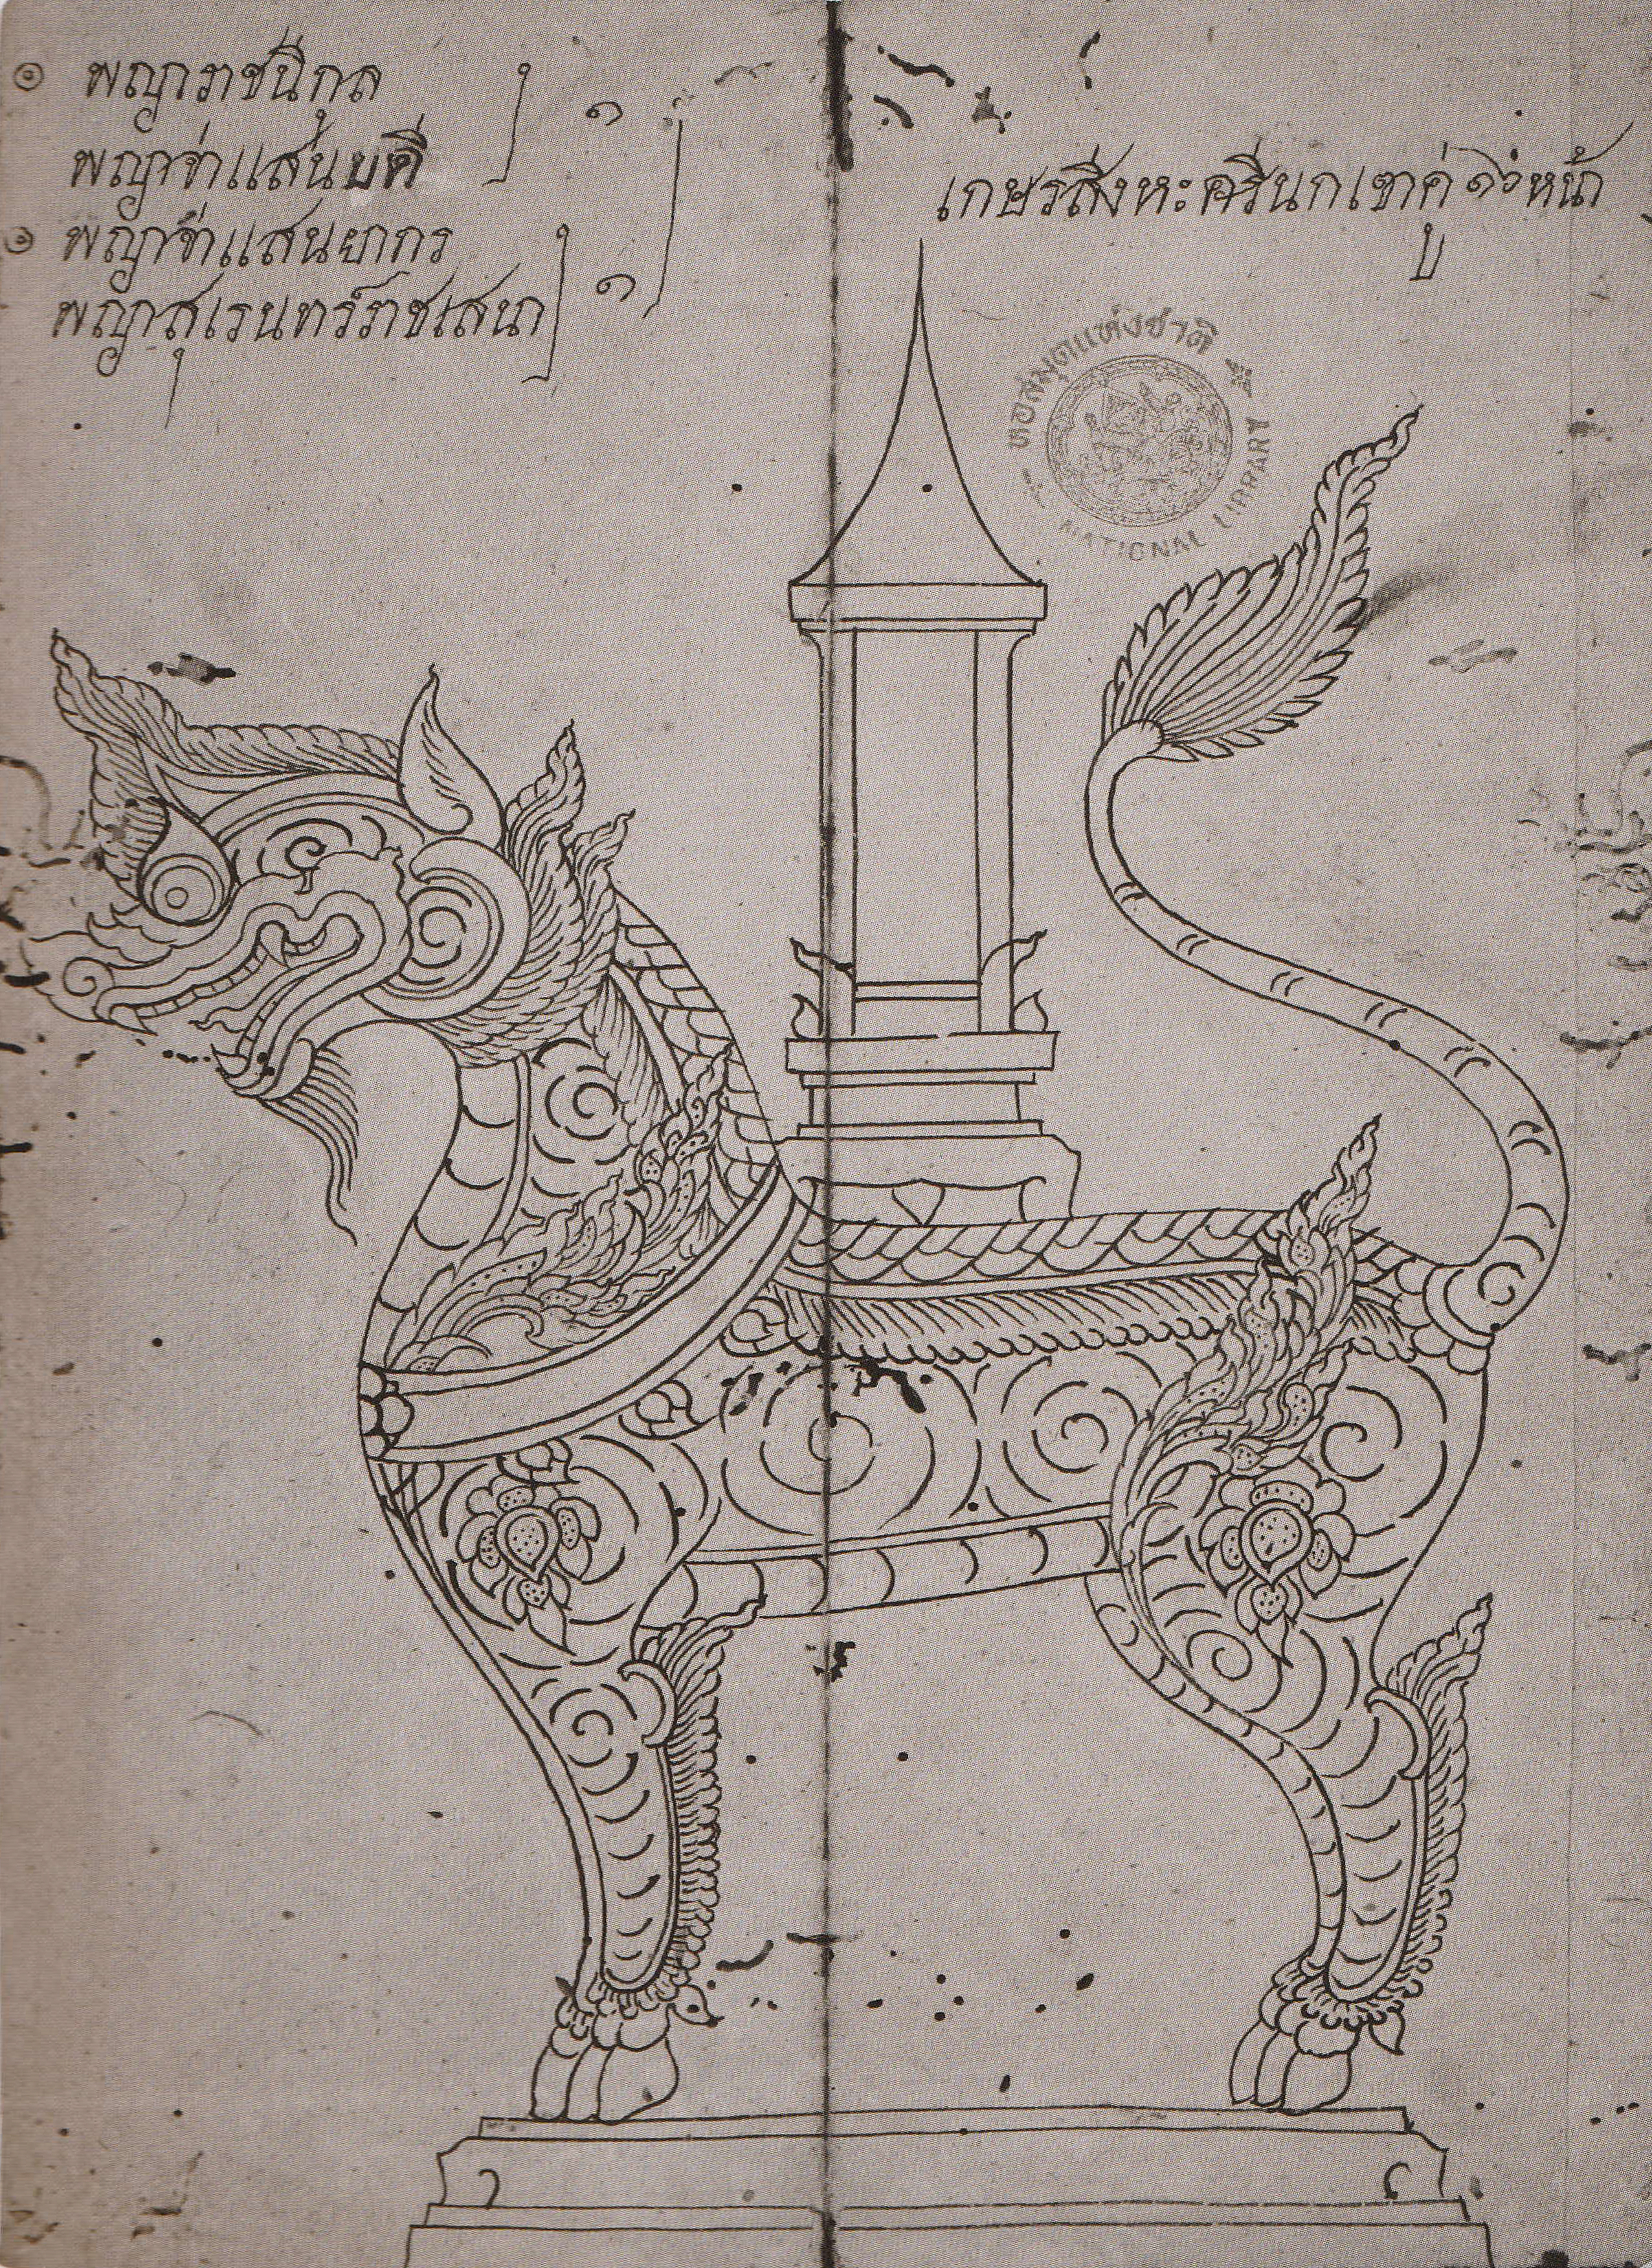 ๏ พญาราชนิกูล
พญาจ่าแสนบดี
๏ พญาจ่าแสนยากร
พญาสุเรนทร์ราชเสนา
๑
๑
เกษรสิงหะครีนกเขาคู่ หน้า
หอสมุดแห่งชาติ
NATIONAL LIBRARY